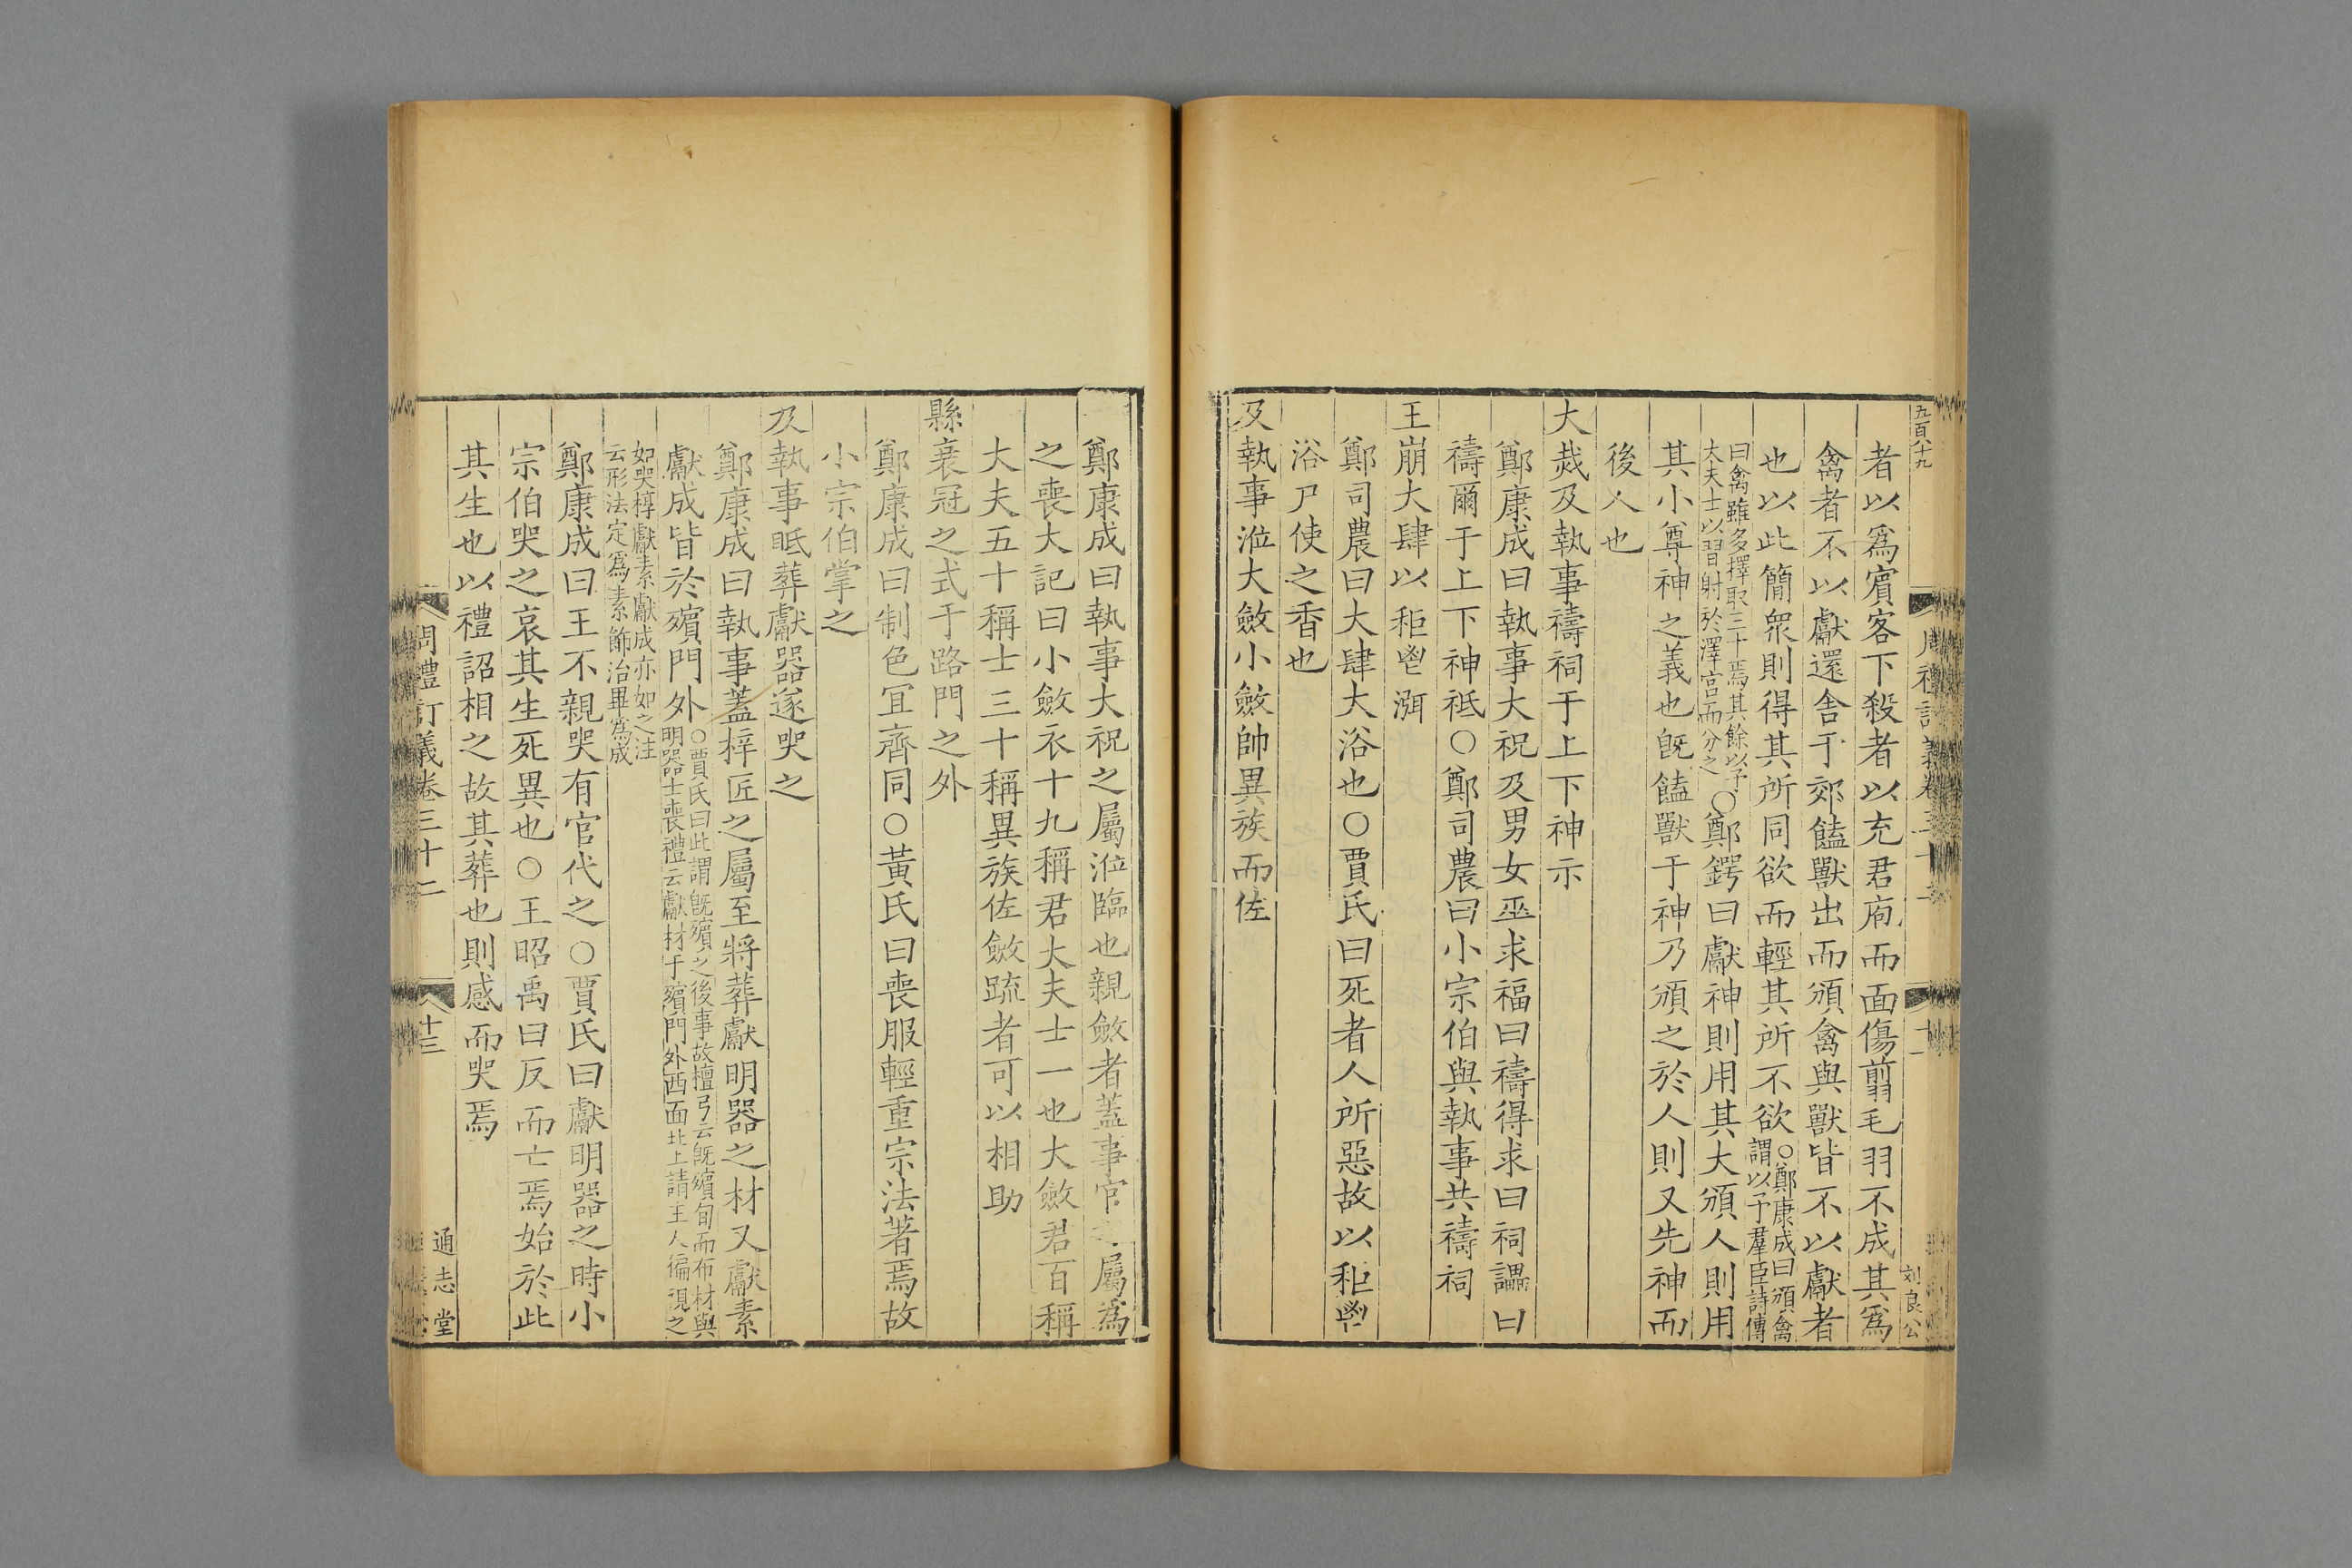 五百八十九
者以爲賓客下殺者以充君庖而面傷翦毛羽不成其爲
禽者不以獻還舍于郊饁獸出而頒禽與獸皆不以獻者
也以此簡衆則得其所同欲而輕其所不欲○鄭康成曰頒禽
謂以予羣臣詩傳
曰禽雖多擇取三十焉其餘以予
大夫士以習射於澤宮而分之○鄭鍔曰獻神則用其大頒人則用
其小尊神之義也旣饁獸于神乃頒之於人則又先神而
後人也
大烖及執事禱祠于上下神示
鄭康成曰執事大祝及男女巫求福曰禱得求曰祠讄曰
禱爾于上下神祗○鄭司農曰小宗伯與執事共禱祠
王崩大肆以秬鬯渳
鄭司農曰大肆大浴也○賈氏曰死者人所惡故以秬鬯
浴尸使之香也
及執事涖大斂小斂帥異族而佐
刘良公
鄭康成曰執事大祝之屬涖臨也親斂者蓋事官之屬爲
之喪大記曰小斂衣十九稱君大夫士一也大斂君百稱
大夫五十稱士三十稱異族佐斂疏者可以相助
縣衰冠之式于路門之外
鄭康成曰制色宜齊同○黃氏曰喪服輕重宗法著焉故
小宗伯掌之
及執事眡葬獻器遂哭之
鄭康成曰執事蓋梓匠之屬至將葬獻明器之材又獻素
獻成皆於殯門外○賈氏曰此謂旣殯之後事故檀弓云旣殯旬而布材與
明器士喪禮云獻材于殯門外西面北上請王人徧視之
如哭椁獻素獻成亦如之注
云形法定爲素飾治畢爲成
鄭康成曰王不親哭有官代之○賈氏曰獻明器之時小
宗伯哭之哀其生死異也○王昭禹曰反而亡焉始於此
其生也以禮詔相之故其葬也則感而哭焉
周禮訂義卷三十二
十三
通志堂